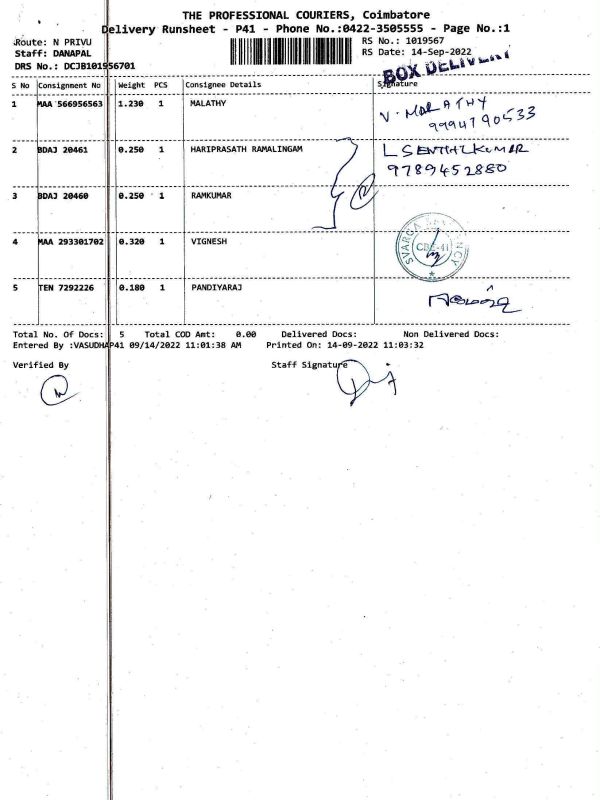 THE PROFESSIONAL COURIERS, Coimbatore
Delivery Runsheet - P41 - Phone No.:0422-3505555 - Page No.:1
Route: N PRIVU RS No.: 1019567
Staff: DANAPAL RS Date: 14-Sep-2022
DRS No.: DCJB101956701
BOX DELIVERY
S No Consignment No Weight PCS Consignee Details Signature
1 MAA 566956563 1.230 1 MALATHY V. MALATHY
9994790533
2 BDAJ 20461 0.250 1 HARIPRASATH RAMALINGAM L SENTHILKUMAR
9789452880
3 BDAJ 20460 0.250 1 RAMKUMAR
4 MAA 293301702 0.320 1 VIGNESH
CBE-41
5 TEN 7292226 0.180 1 PANDIYARAJ
Total No. Of Docs: 5 Total COD Amt: 0.00 Delivered Docs: Non Delivered Docs:
Entered By :VASUDHAP41 09/14/2022 11:01:38 AM Printed On: 14-09-2022 11:03:32
Verified By Staff Signature